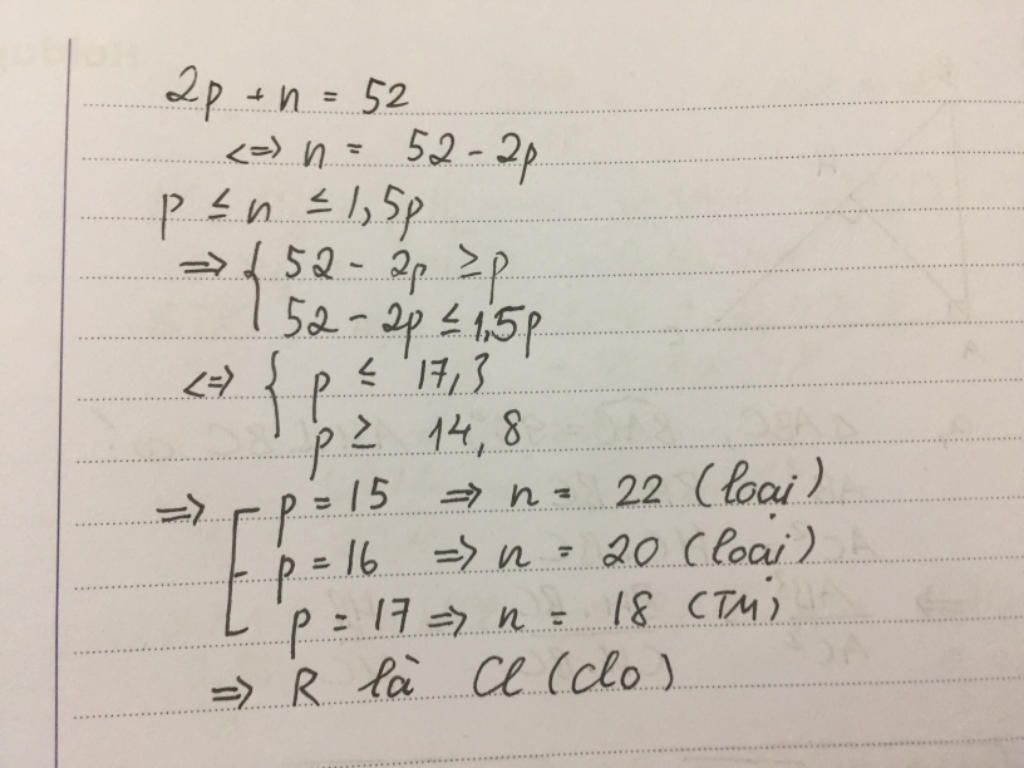 2p + n = 52
<=> n = 52 - 2p
p ≤ n ≤ 1,5p
=> { 52 - 2p ≥ p
52 - 2p ≤ 1,5p
<=> { p ≤ 17,3
p ≥ 14,8
=> [ p = 15 => n = 22 (loại)
p = 16 => n = 20 (loại)
p = 17 => n = 18 (TM)
=> R là Cl (clo)